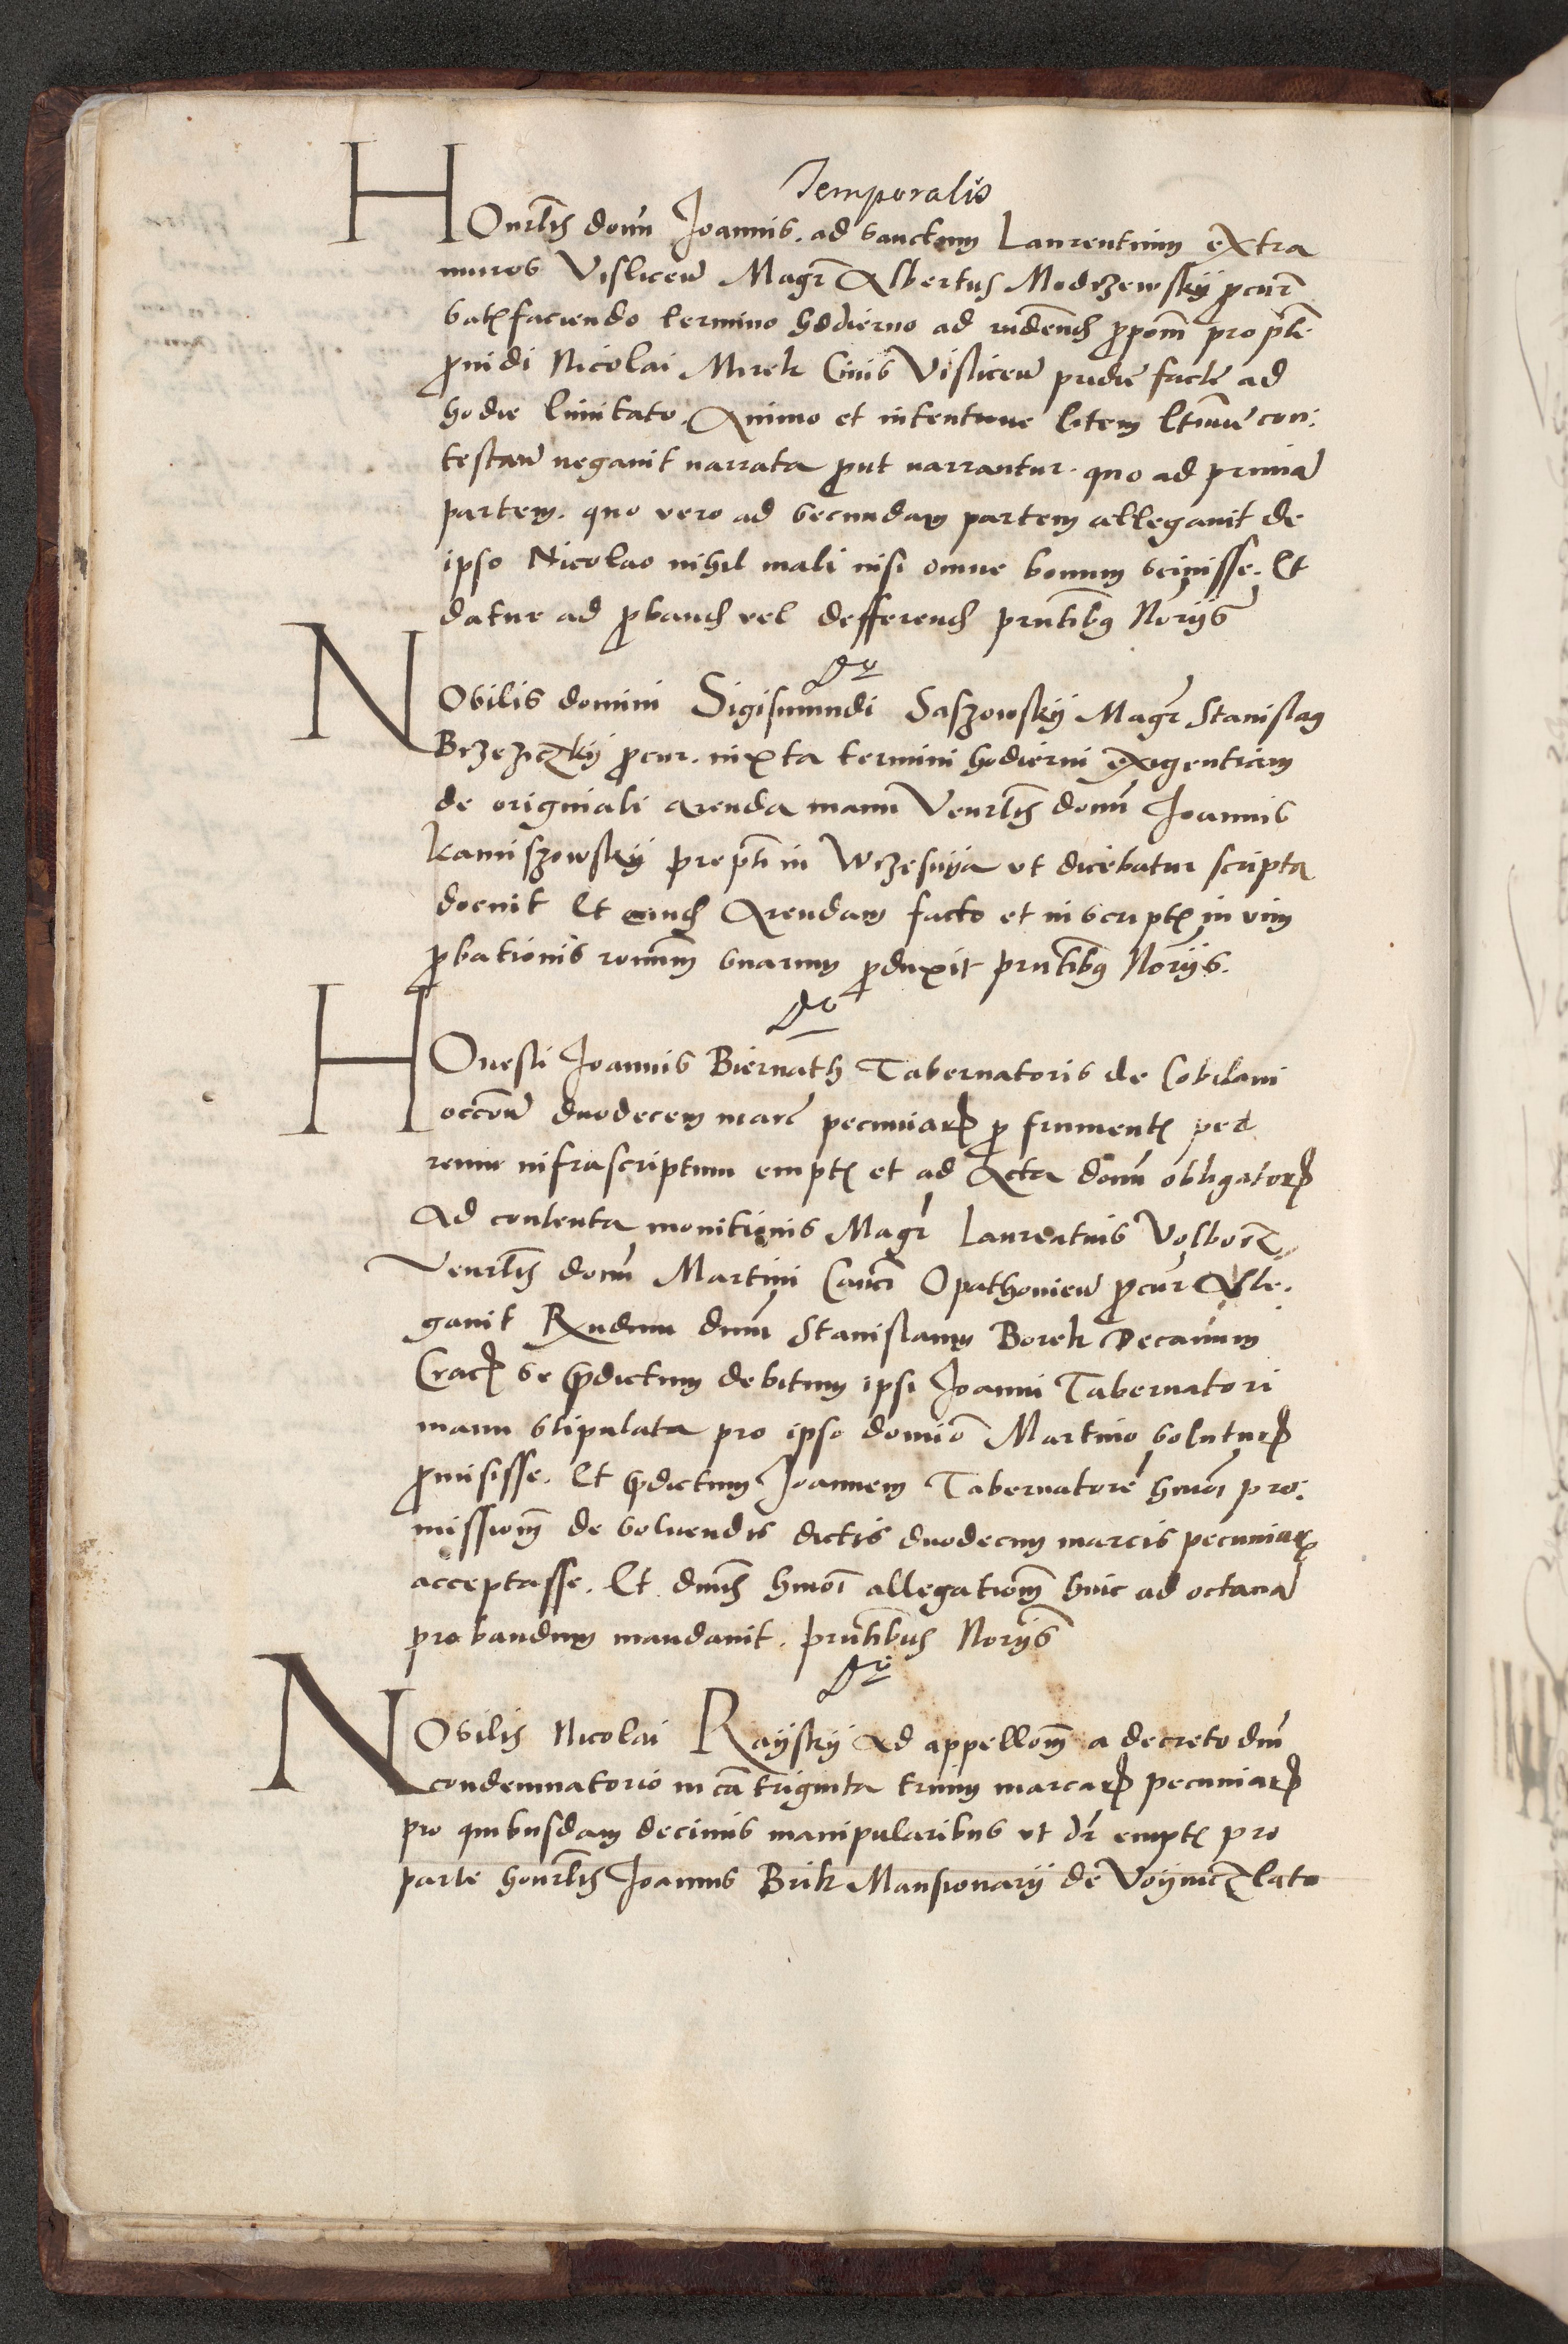 Temporalis
HOnrlis domi Joannis. ad sanctum Laurentium extra
muros Visliceñ Magr Albertus Modrzewskij pcurr
satisfaciendo termino hodierno ad ppom pro pte
pvidi Nicolai Mirek Civis Visliceñ pridie facte ad
hodie limitato. Animo et intentione litem ltime con:
testan negavit narrata put narrantur. quo ad primā
partem. quo vero ad secundam partem allegavit de
ipso Nicolao nihil mali nisi omne bonum scivisse. Et
datur ad pband vel defferend pntibq Norijs
NObilis domini Sigismundi Saszowskij Magr Stanislaq
Brzeziczkij pcur. iuxta termini hodierni exigentiam
de originali arenda manu Venrlis domi Joannis
Kamiszowskij prepti in Wrzesnija ut dicebatur scripta
docuit Et eand Arendam facto et in scriptis in vim
pbationis ronum suarum pduxit pntibq Norijs.
HOnesti Joannis Biernath Tabernatoris de Cobilani
occone duodecem marc pecuniar p frumentis per
reum infrascriptum emptis et ad Acta domi obligator
Ad contenta monitionis Magr Laureatus Volborz
Venrlis domi Martini Canci Opathovien pcur Alle:
gavit Rndum dnm Stanislaum Borek Decanum
Crac se pdictum debitum ipsi Joanni Tabernatori
manu stipulata pro ipso domio Martino soluturū
pmisisse. Et pdictum Joannem Tabernatorē hmoi pro:
missiom de solvendis dictis duodecim marcis pecuniar
acceptasse. Et dnus hmoi allegatiom huic ad octavā
probandum mandavit. pntibus Norijs
NObilis Nicolai Raijskij Ad appellom a decreto dni
condemnatorio in cā triginta trium marcar pecuniar
pro quibusdam decimis manipularibus ut dr emptis pro
parte honrlis Joannis Brik Mansionarij de Voijnicz lato